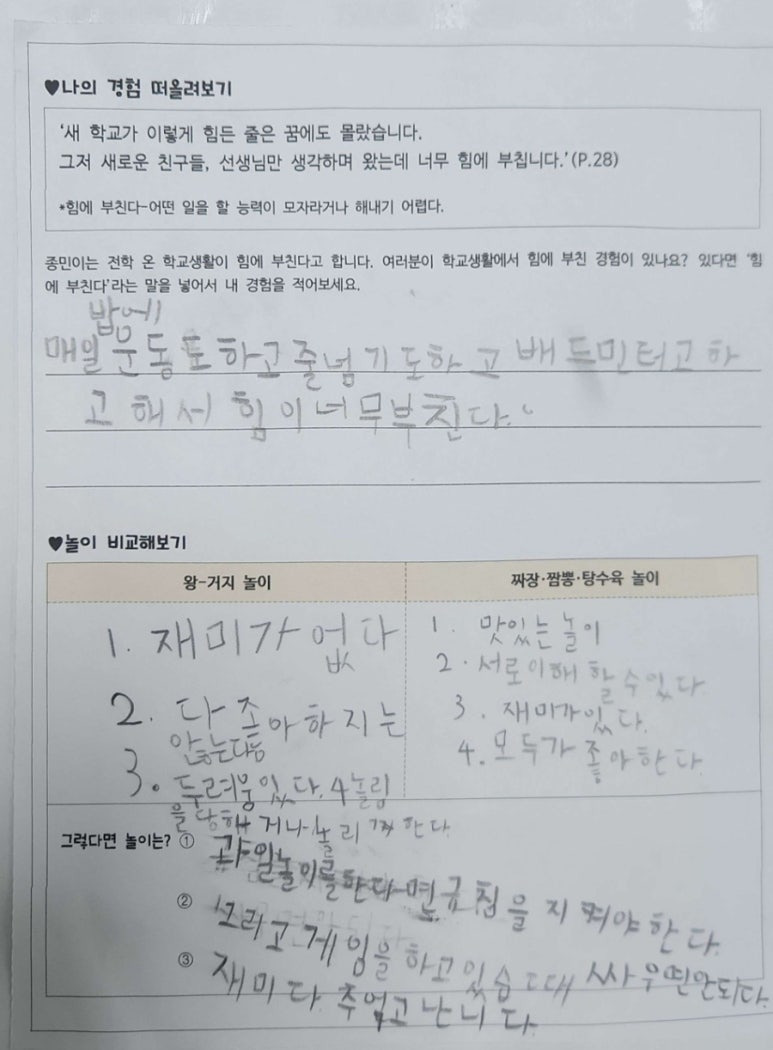 ♥나의 경험 떠올려보기
'새 학교가 이렇게 힘든 줄은 꿈에도 몰랐습니다.
그저 새로운 친구들, 선생님만 생각하며 왔는데 너무 힘에 부칩니다.'(P.28)
*힘에 부친다-어떤 일을 할 능력이 모자라거나 해내기 어렵다.
종민이는 전학 온 학교생활이 힘에 부친다고 합니다. 여러분이 학교생활에서 힘에 부친 경험이 있나요? 있다면 '힘
에 부친다'라는 말을 넣어서 내 경험을 적어보세요.
밤에
매일 운동도 하고 줄넘기도하고 배드민터고하
고 해서 힘이 너무부친다.
♥놀이 비교해보기
왕-거지 놀이
1. 재미가 없다
2. 다 좋아하지는
않는다
3. 두려움있다. 4놀림
을 당해 거나 놀리 한다.
짜장·짬뽕·탕수육 놀이
1. 맛있는 놀이
2. 서로이해 할 수있다.
3. 재미가있다.
4. 모두가 좋아한다.
그렇다면 놀이는? ①
놀이를한다면 규칙을 지켜야한다.
② 그리고 게임을 하고있습 대 싸우면안되다.
③ 재미다 추 고 난니다.